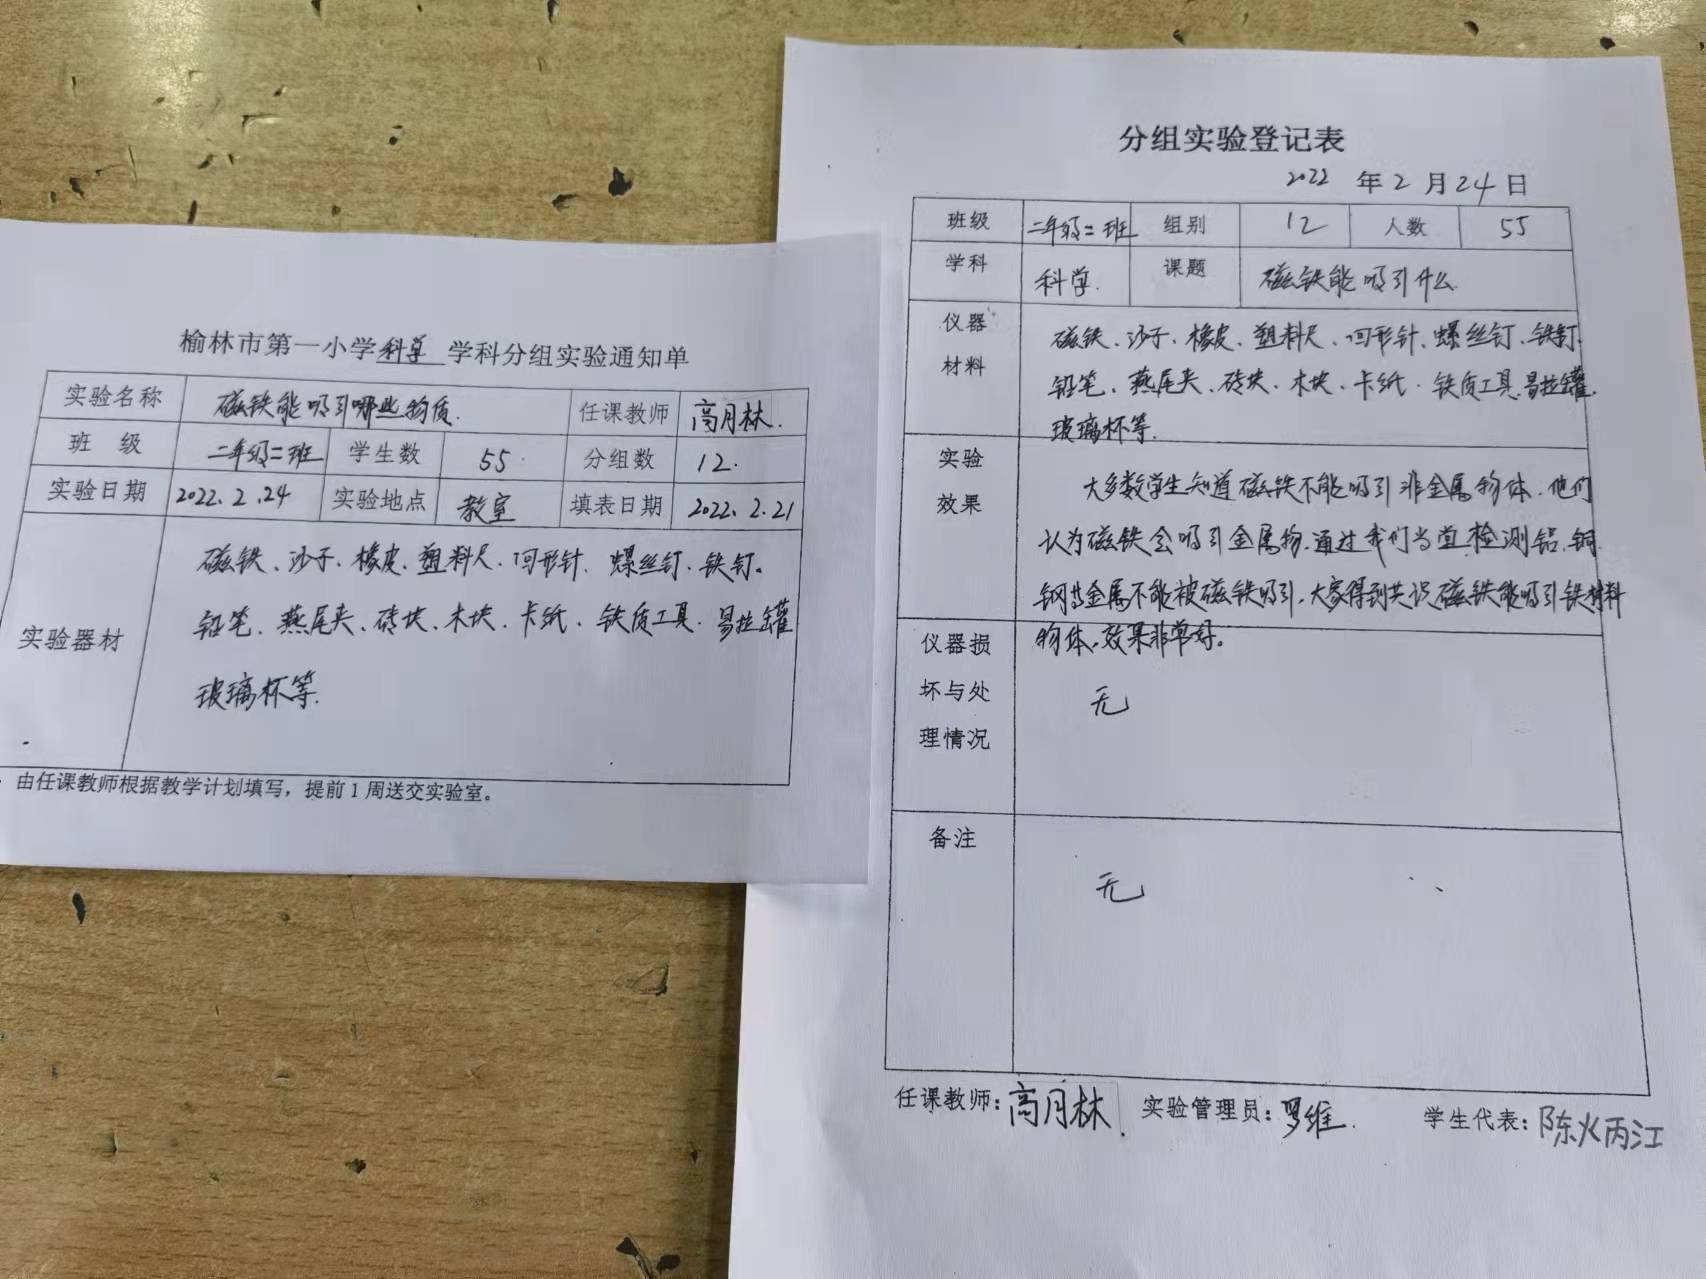 榆林市第一小学科学 学科分组实验通知单
实验名称 磁铁能吸引哪些物质. 任课教师 高月林.
班 级 二年级二班 学生数 55 分组数 12.
实验日期 2022.2.24 实验地点 教室 填表日期 2022.2.21
实验器材
磁铁、沙子、橡皮、塑料尺、回形针、螺丝钉、铁钉。
铅笔、燕尾夹、砖块、木块、卡纸、铁质工具、易拉罐
玻璃杯等.
由任课教师根据教学计划填写，提前1周送交实验室。
分组实验登记表
2022 年 2 月 24 日
班级 二年级二班 组别 12 人数 55
学科 科学. 课题 磁铁能吸引什么
仪器材料
磁铁、沙子、橡皮、塑料尺、回形针、螺丝钉、铁钉.
铅笔、燕尾夹、砖块、木块、卡纸、铁质工具.易拉罐.
玻璃杯等.
实验效果
大多数学生知道磁铁不能吸引非金属物体.他们
认为磁铁会吸引金属物.通过我们当堂检测铝.铜.
钢等金属不能被磁铁吸引,大家得到共识磁铁能吸引铁材料
物体,效果非常好。
仪器损坏与处理情况
无
备注
无
任课教师：高月林. 实验管理员：罗维. 学生代表：陈炳江